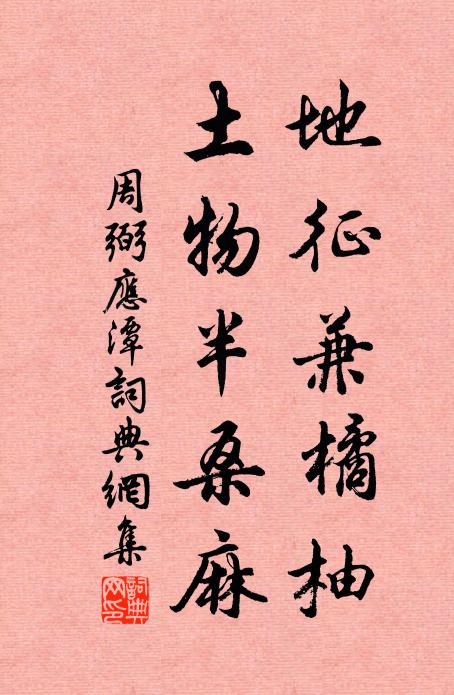 地征兼橘柚
土物半桑麻
周弼應潭詞典網集
詞典網印